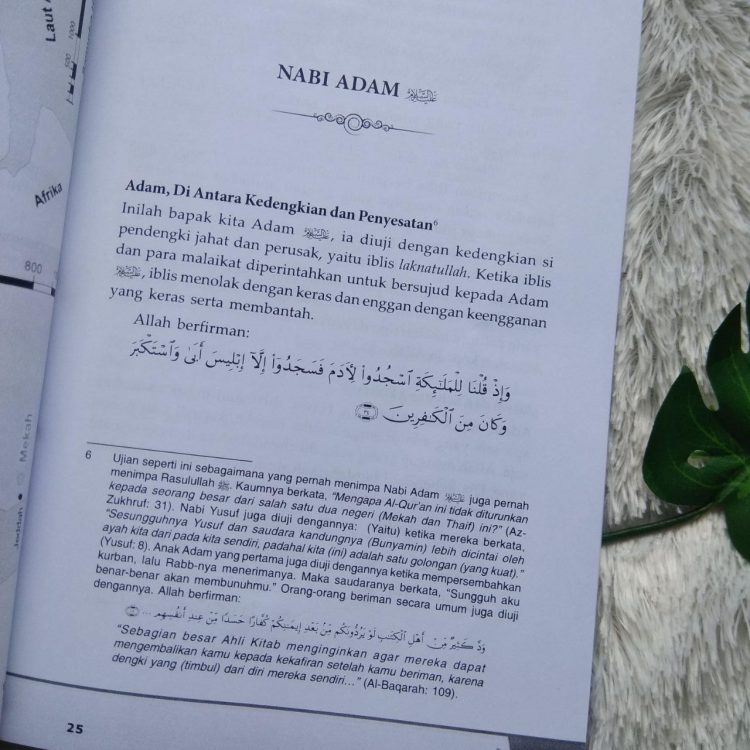 Laut
1000
500
Afrika
800
Mekah
Jeddah
NABI ADAM عليه السلام
Adam, Di Antara Kedengkian dan Penyesatan⁶
Inilah bapak kita Adam عليه السلام, ia diuji dengan kedengkian si
pendengki jahat dan perusak, yaitu iblis laknatullah. Ketika iblis
dan para malaikat diperintahkan untuk bersujud kepada Adam
عليه السلام, iblis menolak dengan keras dan enggan dengan keengganan
yang keras serta membantah.
Allah berfirman:
وَإِذْ قُلْنَا لِلْمَلَـٰٓئِكَةِ ٱسْجُدُوا۟ لِـَٔادَمَ فَسَجَدُوٓا۟ إِلَّآ إِبْلِيسَ أَبَىٰ وَٱسْتَكْبَرَ
وَكَانَ مِنَ ٱلْكَـٰفِرِينَ ٣٤
6 Ujian seperti ini sebagaimana yang pernah menimpa Nabi Adam عليه السلام juga pernah
menimpa Rasulullah ﷺ. Kaumnya berkata, “Mengapa Al-Qur'an ini tidak diturunkan
kepada seorang besar dari salah satu dua negeri (Mekah dan Thaif) ini?” (Az-
Zukhruf: 31). Nabi Yusuf juga diuji dengannya: (Yaitu) ketika mereka berkata,
“Sesungguhnya Yusuf dan saudara kandungnya (Bunyamin) lebih dicintai oleh
ayah kita dari pada kita sendiri, padahal kita (ini) adalah satu golongan (yang kuat).”
(Yusuf: 8). Anak Adam yang pertama juga diuji dengannya ketika mempersembahkan
kurban, lalu Rabb-nya menerimanya. Maka saudaranya berkata, “Sungguh aku
benar-benar akan membunuhmu.” Orang-orang beriman secara umum juga diuji
dengannya. Allah berfirman:
وَدَّ كَثِيرٌ مِّنْ أَهْلِ ٱلْكِتَـٰبِ لَوْ يَرُدُّونَكُم مِّنۢ بَعْدِ إِيمَـٰنِكُمْ كُفَّارًا حَسَدًا مِّنْ عِندِ أَنفُسِهِم ...
“Sebagian besar Ahli Kitab menginginkan agar mereka dapat
mengembalikan kamu kepada kekafiran setelah kamu beriman, karena
dengki yang (timbul) dari diri mereka sendiri...” (Al-Baqarah: 109).
25